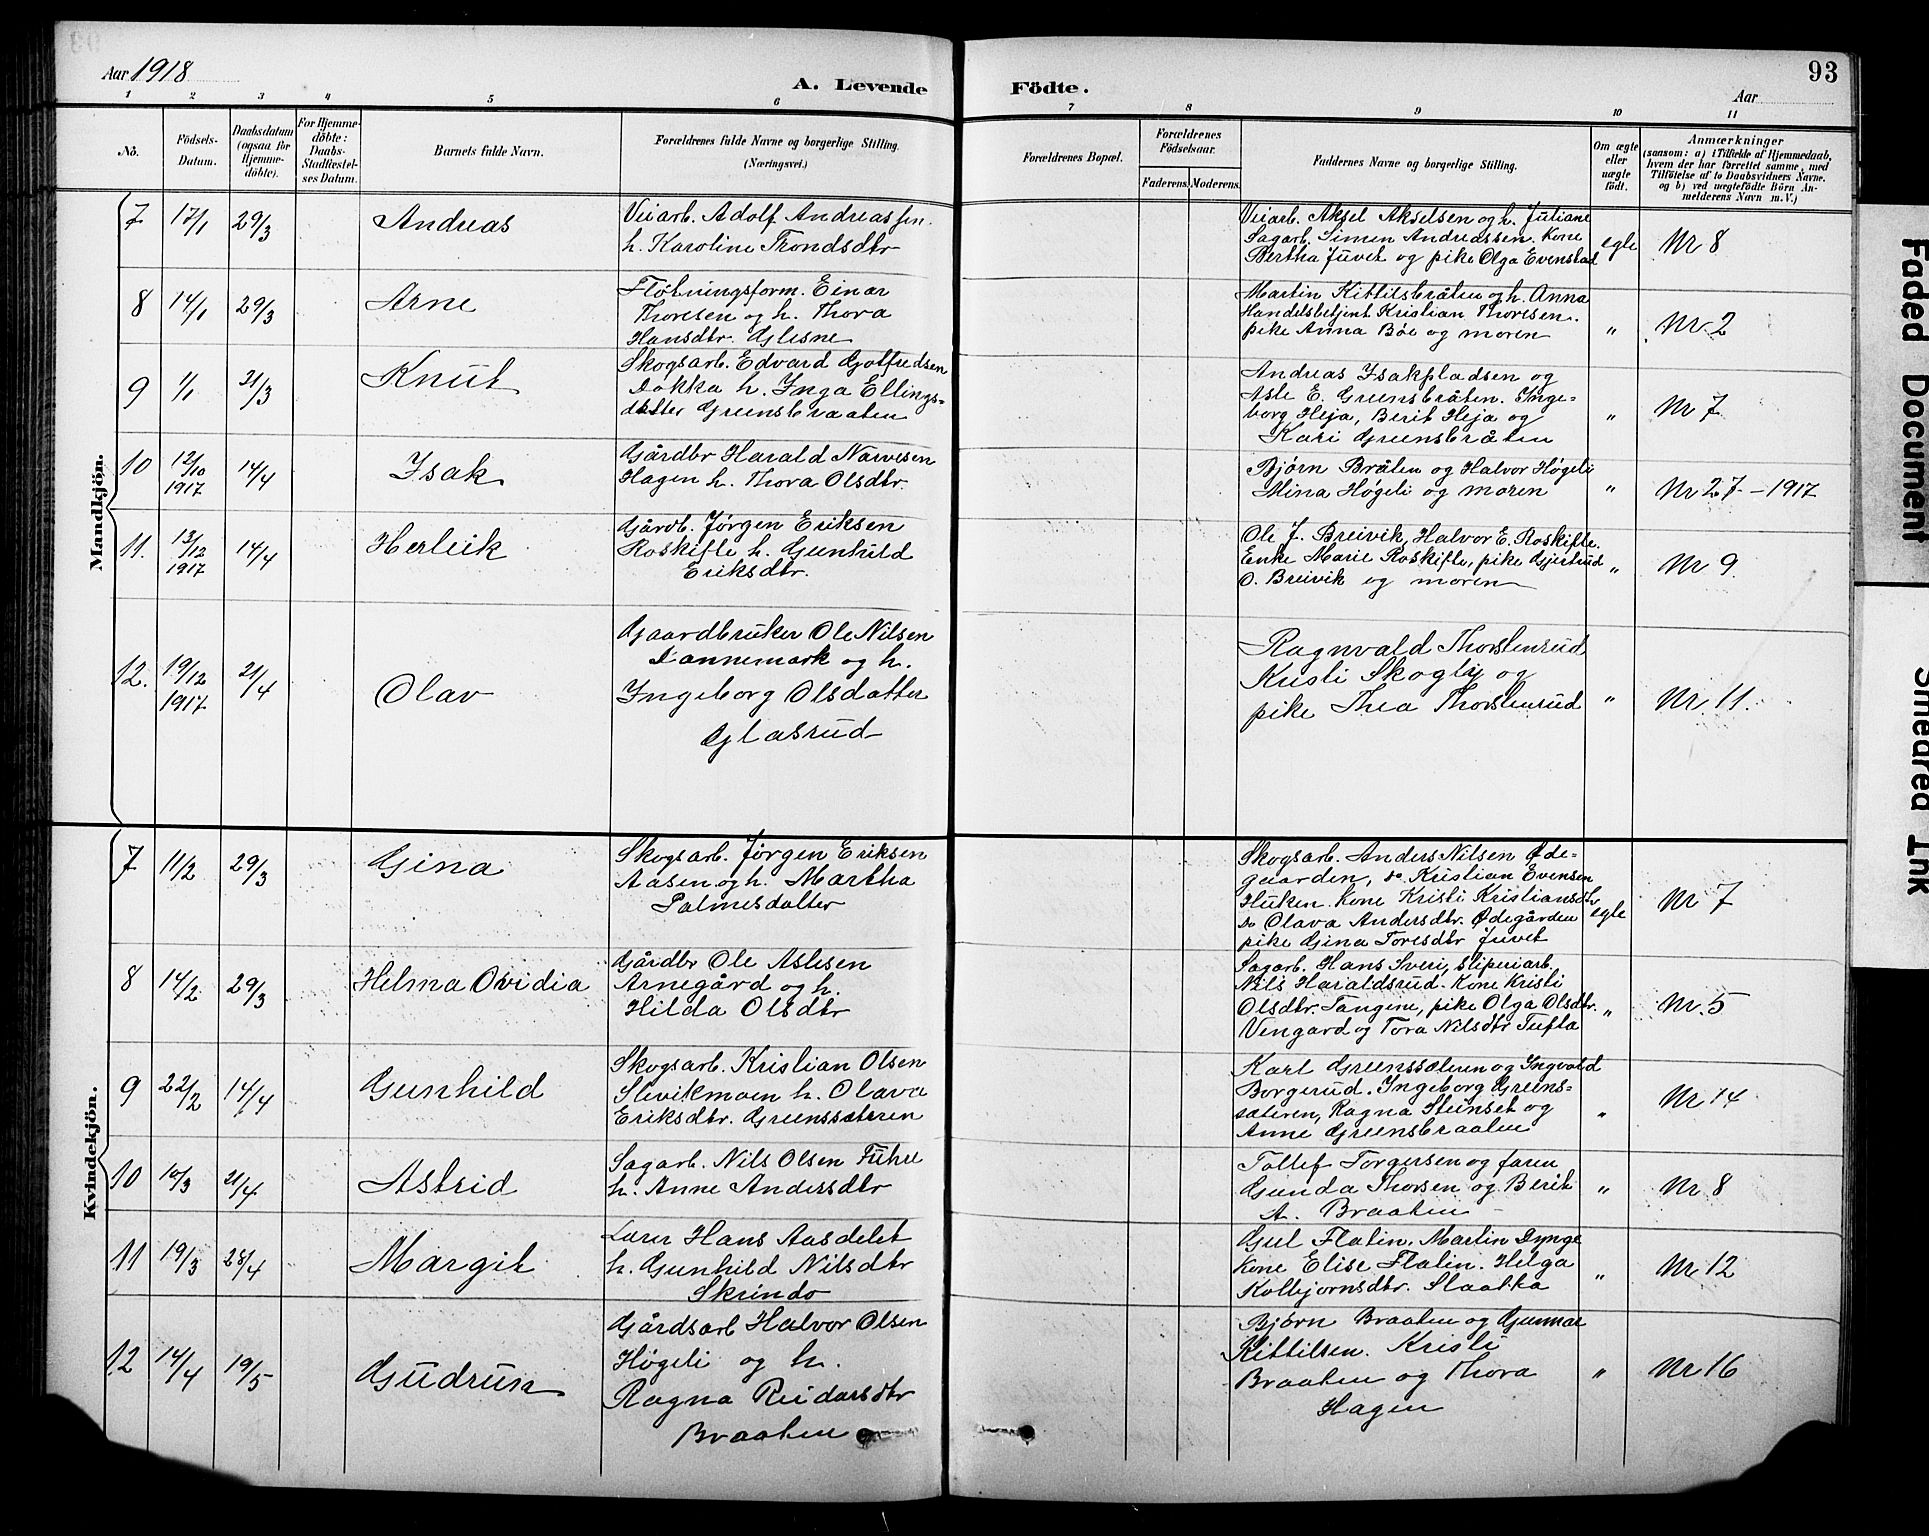 Aar 1918
A. Levende Födte.
93
Aar
1 2 3 4 5 6 7 8 9 10 11
Nô.
Födsels-Datum.
Daabsdatum (ogsaa for Hjemme-döbte).
For Hjemme-döbte: Daabs-Stadfæstel-ses Datum.
Barnets fulde Navn.
Forældrenes fulde Navne og borgerlige Stilling. (Næringsvei.)
Forældrenes Bopæl.
Forældrenes Födselsaar.
Faderens. Moderens.
Faddernes Navne og borgerlige Stilling.
Om ægte eller uægte födt.
Anmærkninger (saasom: a) i Tilfælde af Hjemmedaab, hvem der har forrettet samme, med Tilföielse af to Daabsvidners Navne. og b) ved uægtefödte Börn An-melderens Navn m.V.)
Mandkjön.
7 17/1 29/3 Andreas
Veiarb. Adolf Andreassen.
h. Karoline Trondsdtr
Veiarb. Aksel Akselsen og h. Juliane
Sagarb. Simen Andreassen. Kone
Bertha Juvet og pike Olga Evenstad
egte Nr 8
8 14/1 29/3 Arne
Flötningsform. Einar
Thoresen og h. Thora
Hansdtr. Glesne
Martin Kittilsbråten og h. Anna
Handelsbetjent Kristian Thoresen.
pike Anna Böe og moren
" Nr. 2
9 1/1 21/3 Knut
Skogsarb. Edvard Gotfredsen
Dokka h. Inga Ellings-
datter Greensbraaten
Andreas Isakpladsen og
Asle E. Grensbråten. Inge-
borg Heja, Berit Heja og
Kari Grensbråten
" Nr 7
10 12/10 1917 14/4 Isak
Gårdbr Harald Narvesen
Hagen h. Thora Olsdtr.
Bjørn Bråten og Halvor Høgeli
Mina Høgeli og moren
" Nr 27 - 1917
11. 13/12 1917 14/4 Herleik
Gårdb. Jørgen Eriksen
Roskifte h. Gunhild
Eriksdtr.
Ole J. Breivik, Halvor E. Roskifte.
Enke Marie Roskifte, pike Gjertrud
O. Breivik og moren
" Nr 9.
12. 19/12 1917 21/4 Olav
Gaardbruker Ole Nilsen
Dannemark og h.
Ingeborg Olsdatter
Glasrud
Ragnvald Thorstenrud
Kristi Skogly og
pike Thea Thorstenrud
" Nr. 11.
Kvindekjön.
7 11/2 29/3 Gina
Skogsarb. Jørgen Eriksen
Aasen og h. Martha
Palmesdatter
Skogsarb. Anders Nilsen Øde-
gaarden, do Kristian Evensen
Huken. Kone Kristi Kristiansdtr
do Olava Andersdtr. Ødegården
pike Gina Toresdtr Juvet
egte Nr 7
8 14/2 29/3 Helma Ovidia
Gårdbr Ole Aslesen
Arnegård og h.
Hilda Olsdtr
Sagarb. Hans Sveri, sliperiarb.
Nils Haraldsrud. Kone Kristi
Olsdtr. Tangene, pike Olga Olsdtr.
Vengard og Tora Nilsdtr Tufta
" Nr. 5
9 22/2 14/4 Gunhild
Skogsarb. Kristian Olsen
Stevikmoen h. Olava
Eriksdtr. Grenssæteren
Karl Grenssæteren og Ingvald
Borgerud. Ingeborg Grens-
sæteren, Ragna Stenset og
Anne Grensbraaten
" Nr 14
10 10/3 21/4 Astrid
Sagarb. Nils Olsen
h. Anne Andersdtr
Tollef Torgersen og faren
Gunda Thorsen og Berit
A. Braaten
" Nr 8
11 19/3 28/4 Margit
Lærer Hans Aasdelet
h. Gunhild Nilsdtr
Skrindo
Gul Flatin. Martin Dynge
Kone Elise Flatin. Helga
Kolbjornsdtr. Slaatka
" Nr 12
12 14/4 19/5 Gudrun
Gårdsarb Halvor Olsen
Høgeli og h.
Ragna Reidarsdtr
Braaten
Bjørn Braaten og Gunnar
Kittilsen. Kristi
Braaten og Thora
Hagen
" Nr 16
Faded Document
Smeared Ink